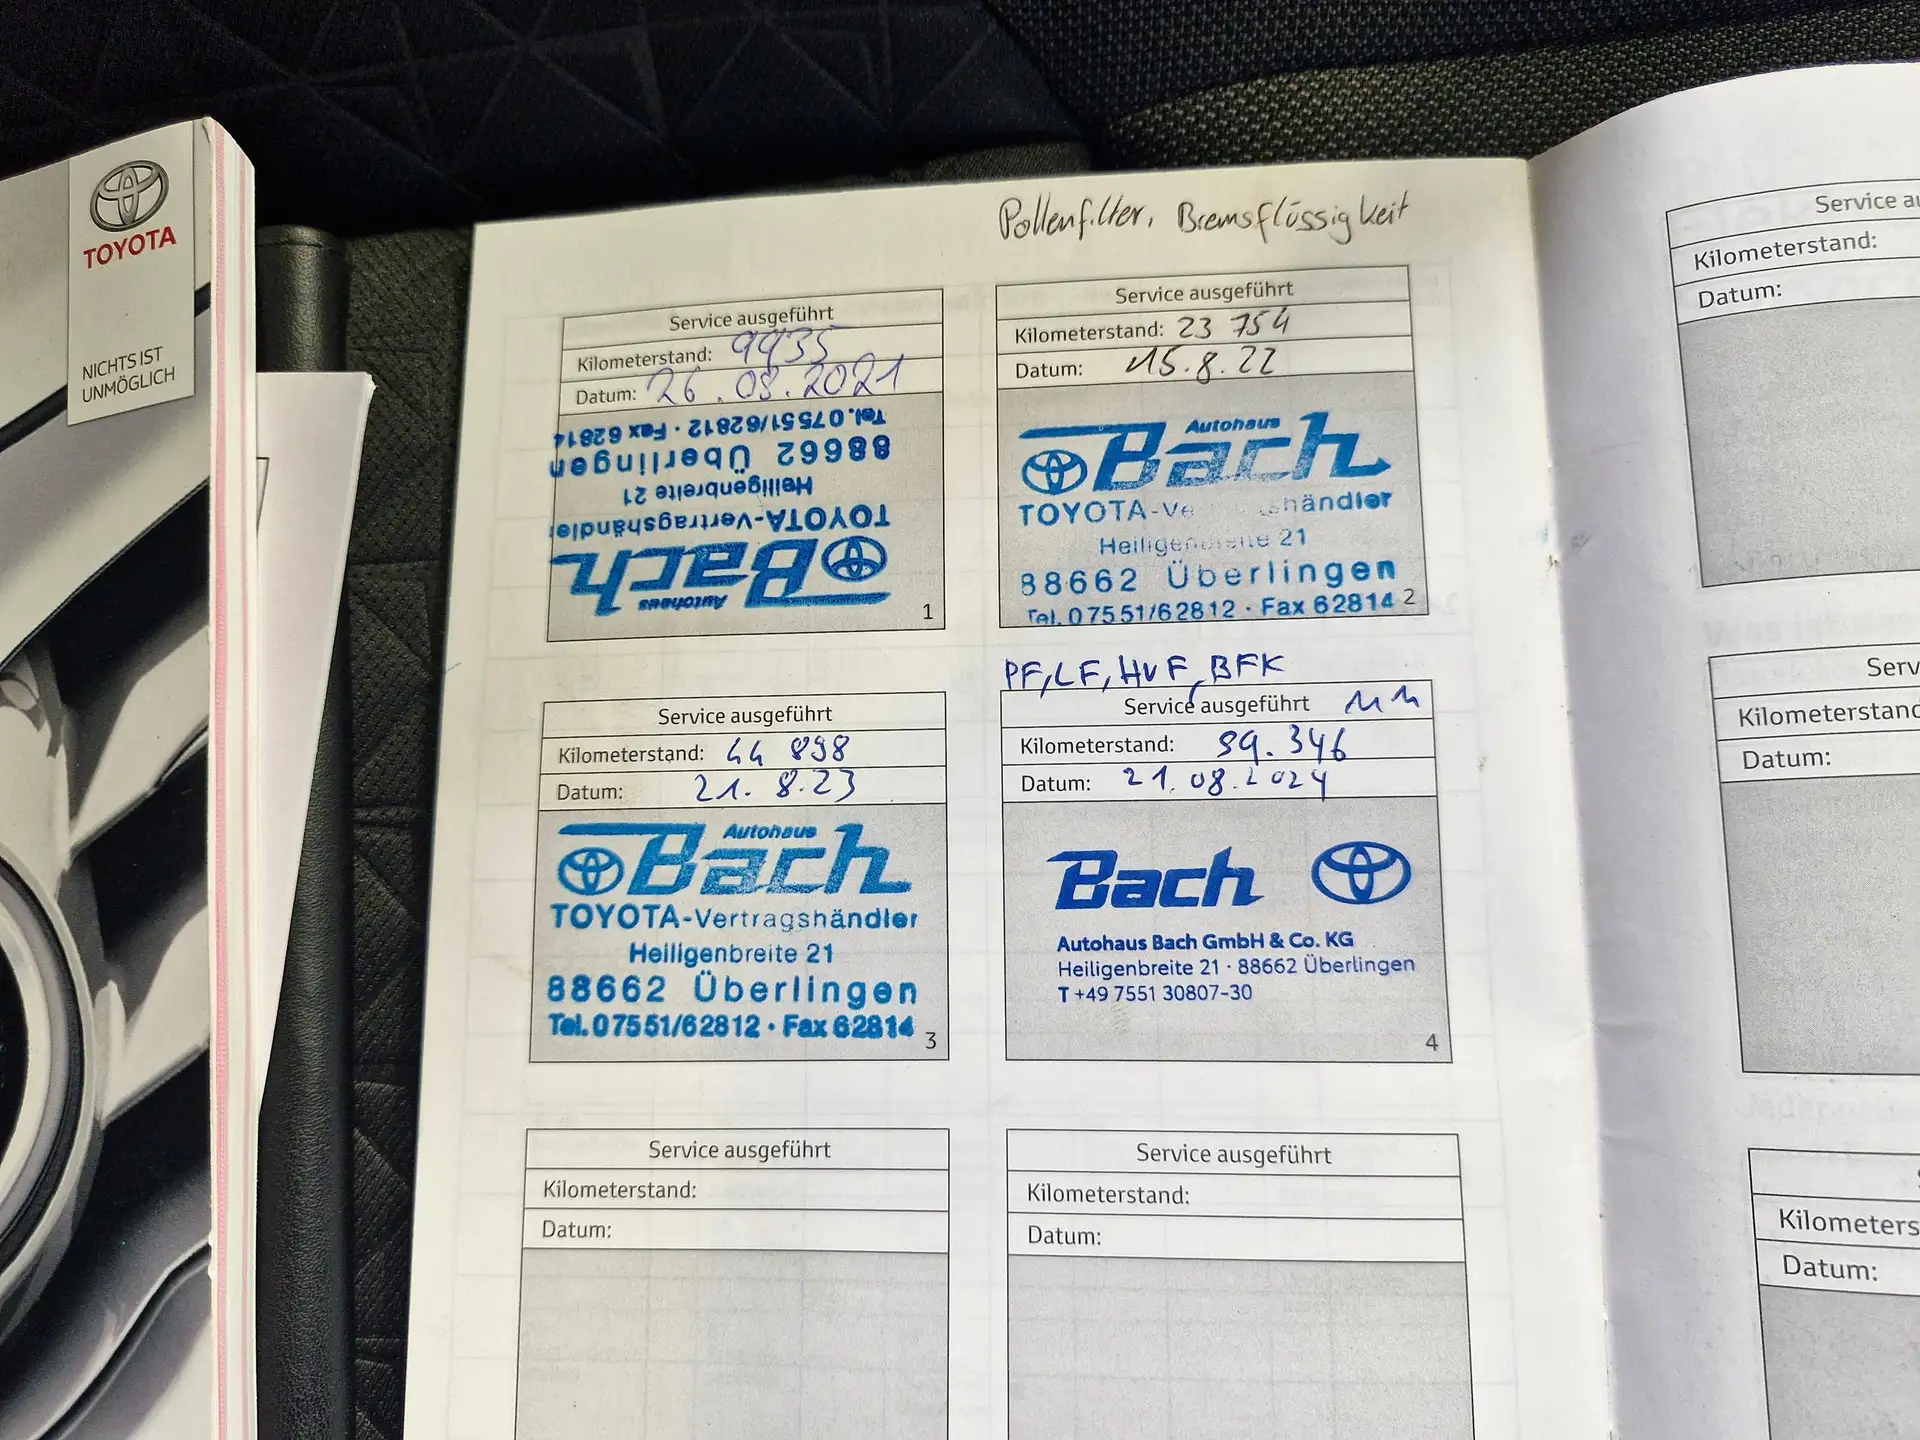 TOYOTA
NICHTS IST
UNMÖGLICH
Pollenfilter, Bremsflüssigkeit
Service ausgeführt
Kilometerstand: 9935
Datum: 26.08.2021
Tel. 07551/62812 · Fax 62814
88662 Überlingen
Heiligenbreite 21
TOYOTA-Vertragshändler
Bach
Autohaus
1
Service ausgeführt
Kilometerstand: 23 754
Datum: 15.8.22
Autohaus
Bach
TOYOTA-Vertragshändler
Heiligenbreite 21
88662 Überlingen
Tel. 07551/62812 · Fax 62814
2
Service ausgeführt
Kilometerstand: 44 898
Datum: 21.8.23
Autohaus
Bach
TOYOTA-Vertragshändler
Heiligenbreite 21
88662 Überlingen
Tel. 07551/62812 · Fax 62814
3
PF, LF, HVF, BFK
Service ausgeführt
Kilometerstand: 59.346
Datum: 21.08.2024
Bach
Autohaus Bach GmbH & Co. KG
Heiligenbreite 21 · 88662 Überlingen
T +49 7551 30807-30
4
Service ausgeführt
Kilometerstand:
Datum:
Service ausgeführt
Kilometerstand:
Datum:
Service
Kilometerstand:
Datum:
Kilometerstand
Datum:
Datum: